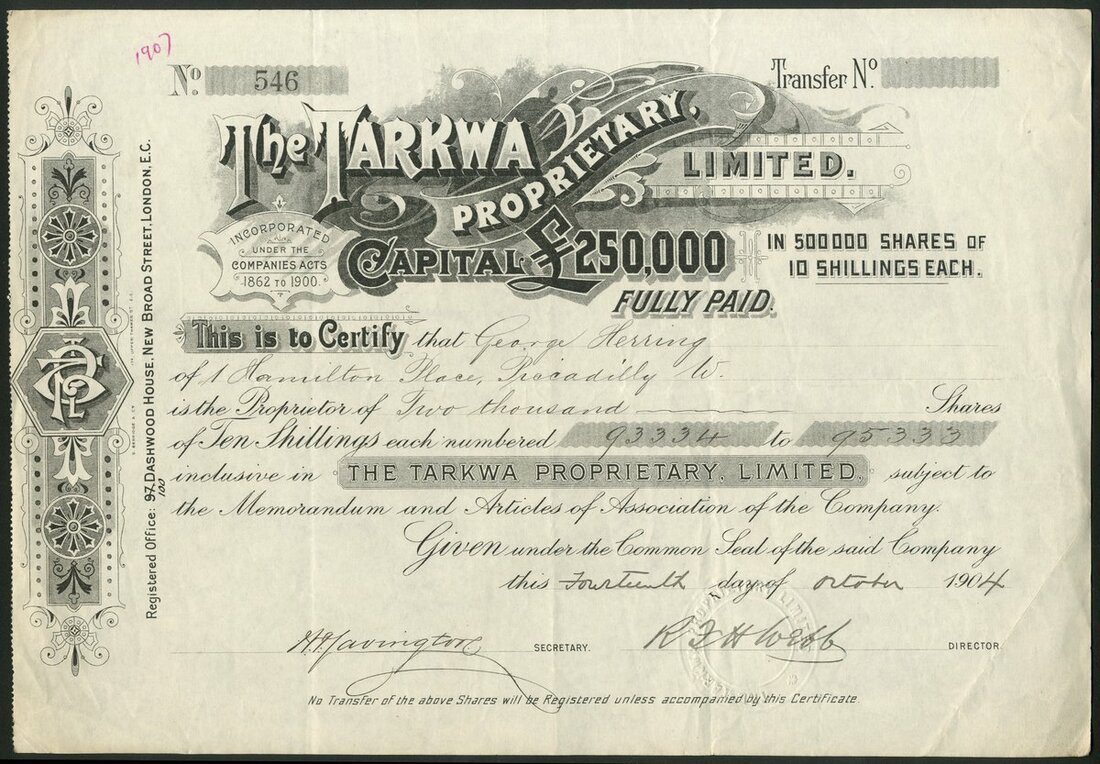 1907
No. 546
Transfer No.
The Tarkwa
Proprietary,
Limited.
Incorporated
under the
Companies Acts
1862 to 1900.
Capital £250,000
in 500000 shares of
10 shillings each.
Fully Paid.
This is to Certify that George Herring
of 1 Hamilton Place, Piccadilly W.
is the Proprietor of Two thousand Shares
of Ten Shillings each numbered 93334 to 95333
inclusive in THE TARKWA PROPRIETARY, LIMITED, subject to
the Memorandum and Articles of Association of the Company.
Given under the Common Seal of the said Company
this Fourteenth day of October 1904
SECRETARY.
R F H Webb
DIRECTOR.
No Transfer of the above Shares will be Registered unless accompanied by this Certificate.
Registered Office: 97, 100 DASHWOOD HOUSE, NEW BROAD STREET, LONDON, E.C.